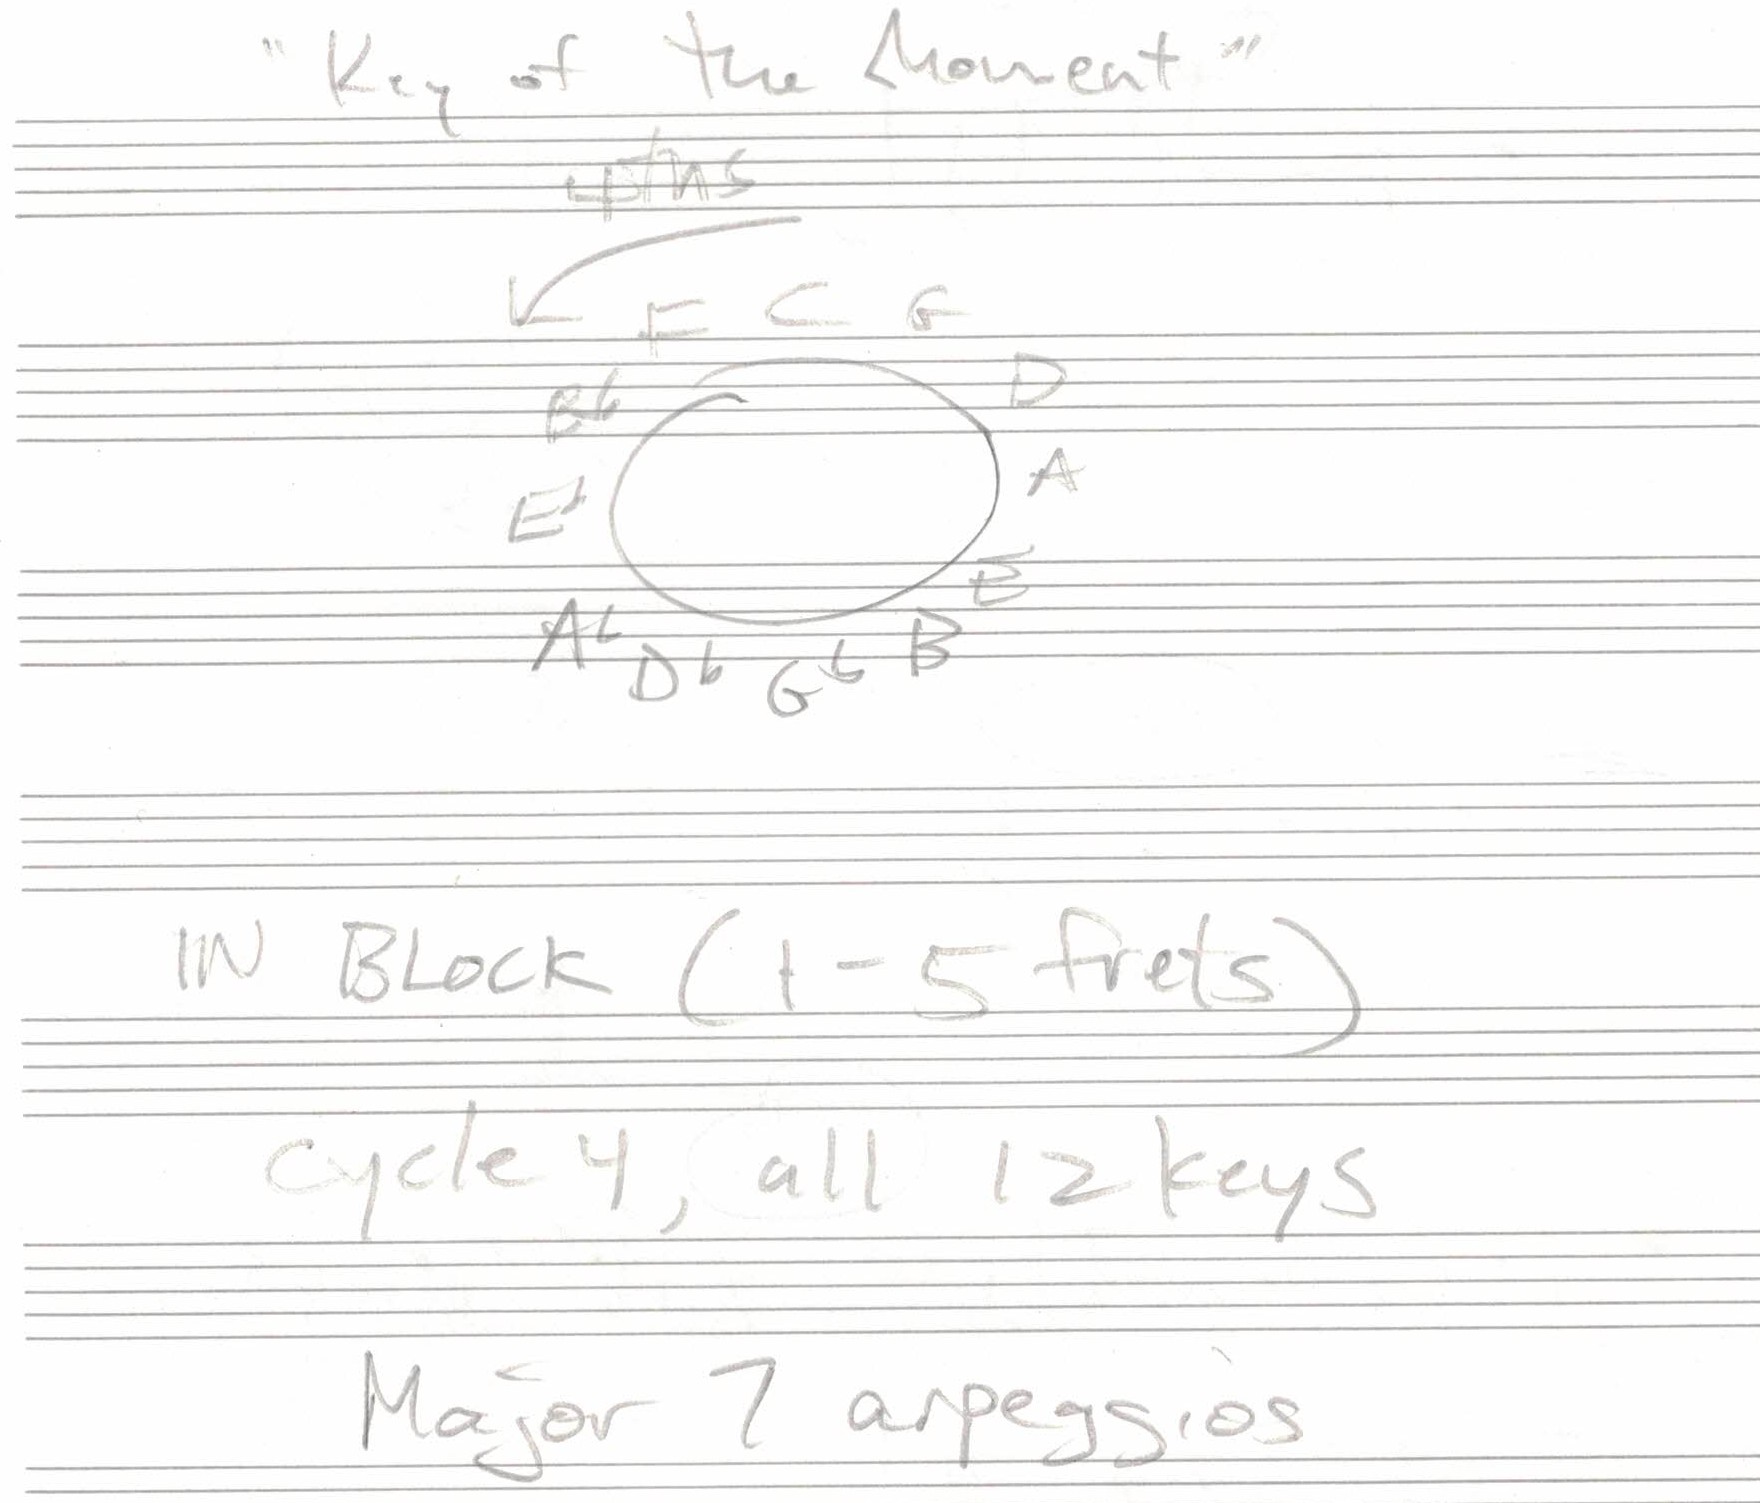 "Key of the Moment"
4ths
F C G
Bb D
Eb A
E
Ab Db Gb B
IN BLOCK (1-5 frets)
cycle 4, all 12 keys
Major 7 arpeggios